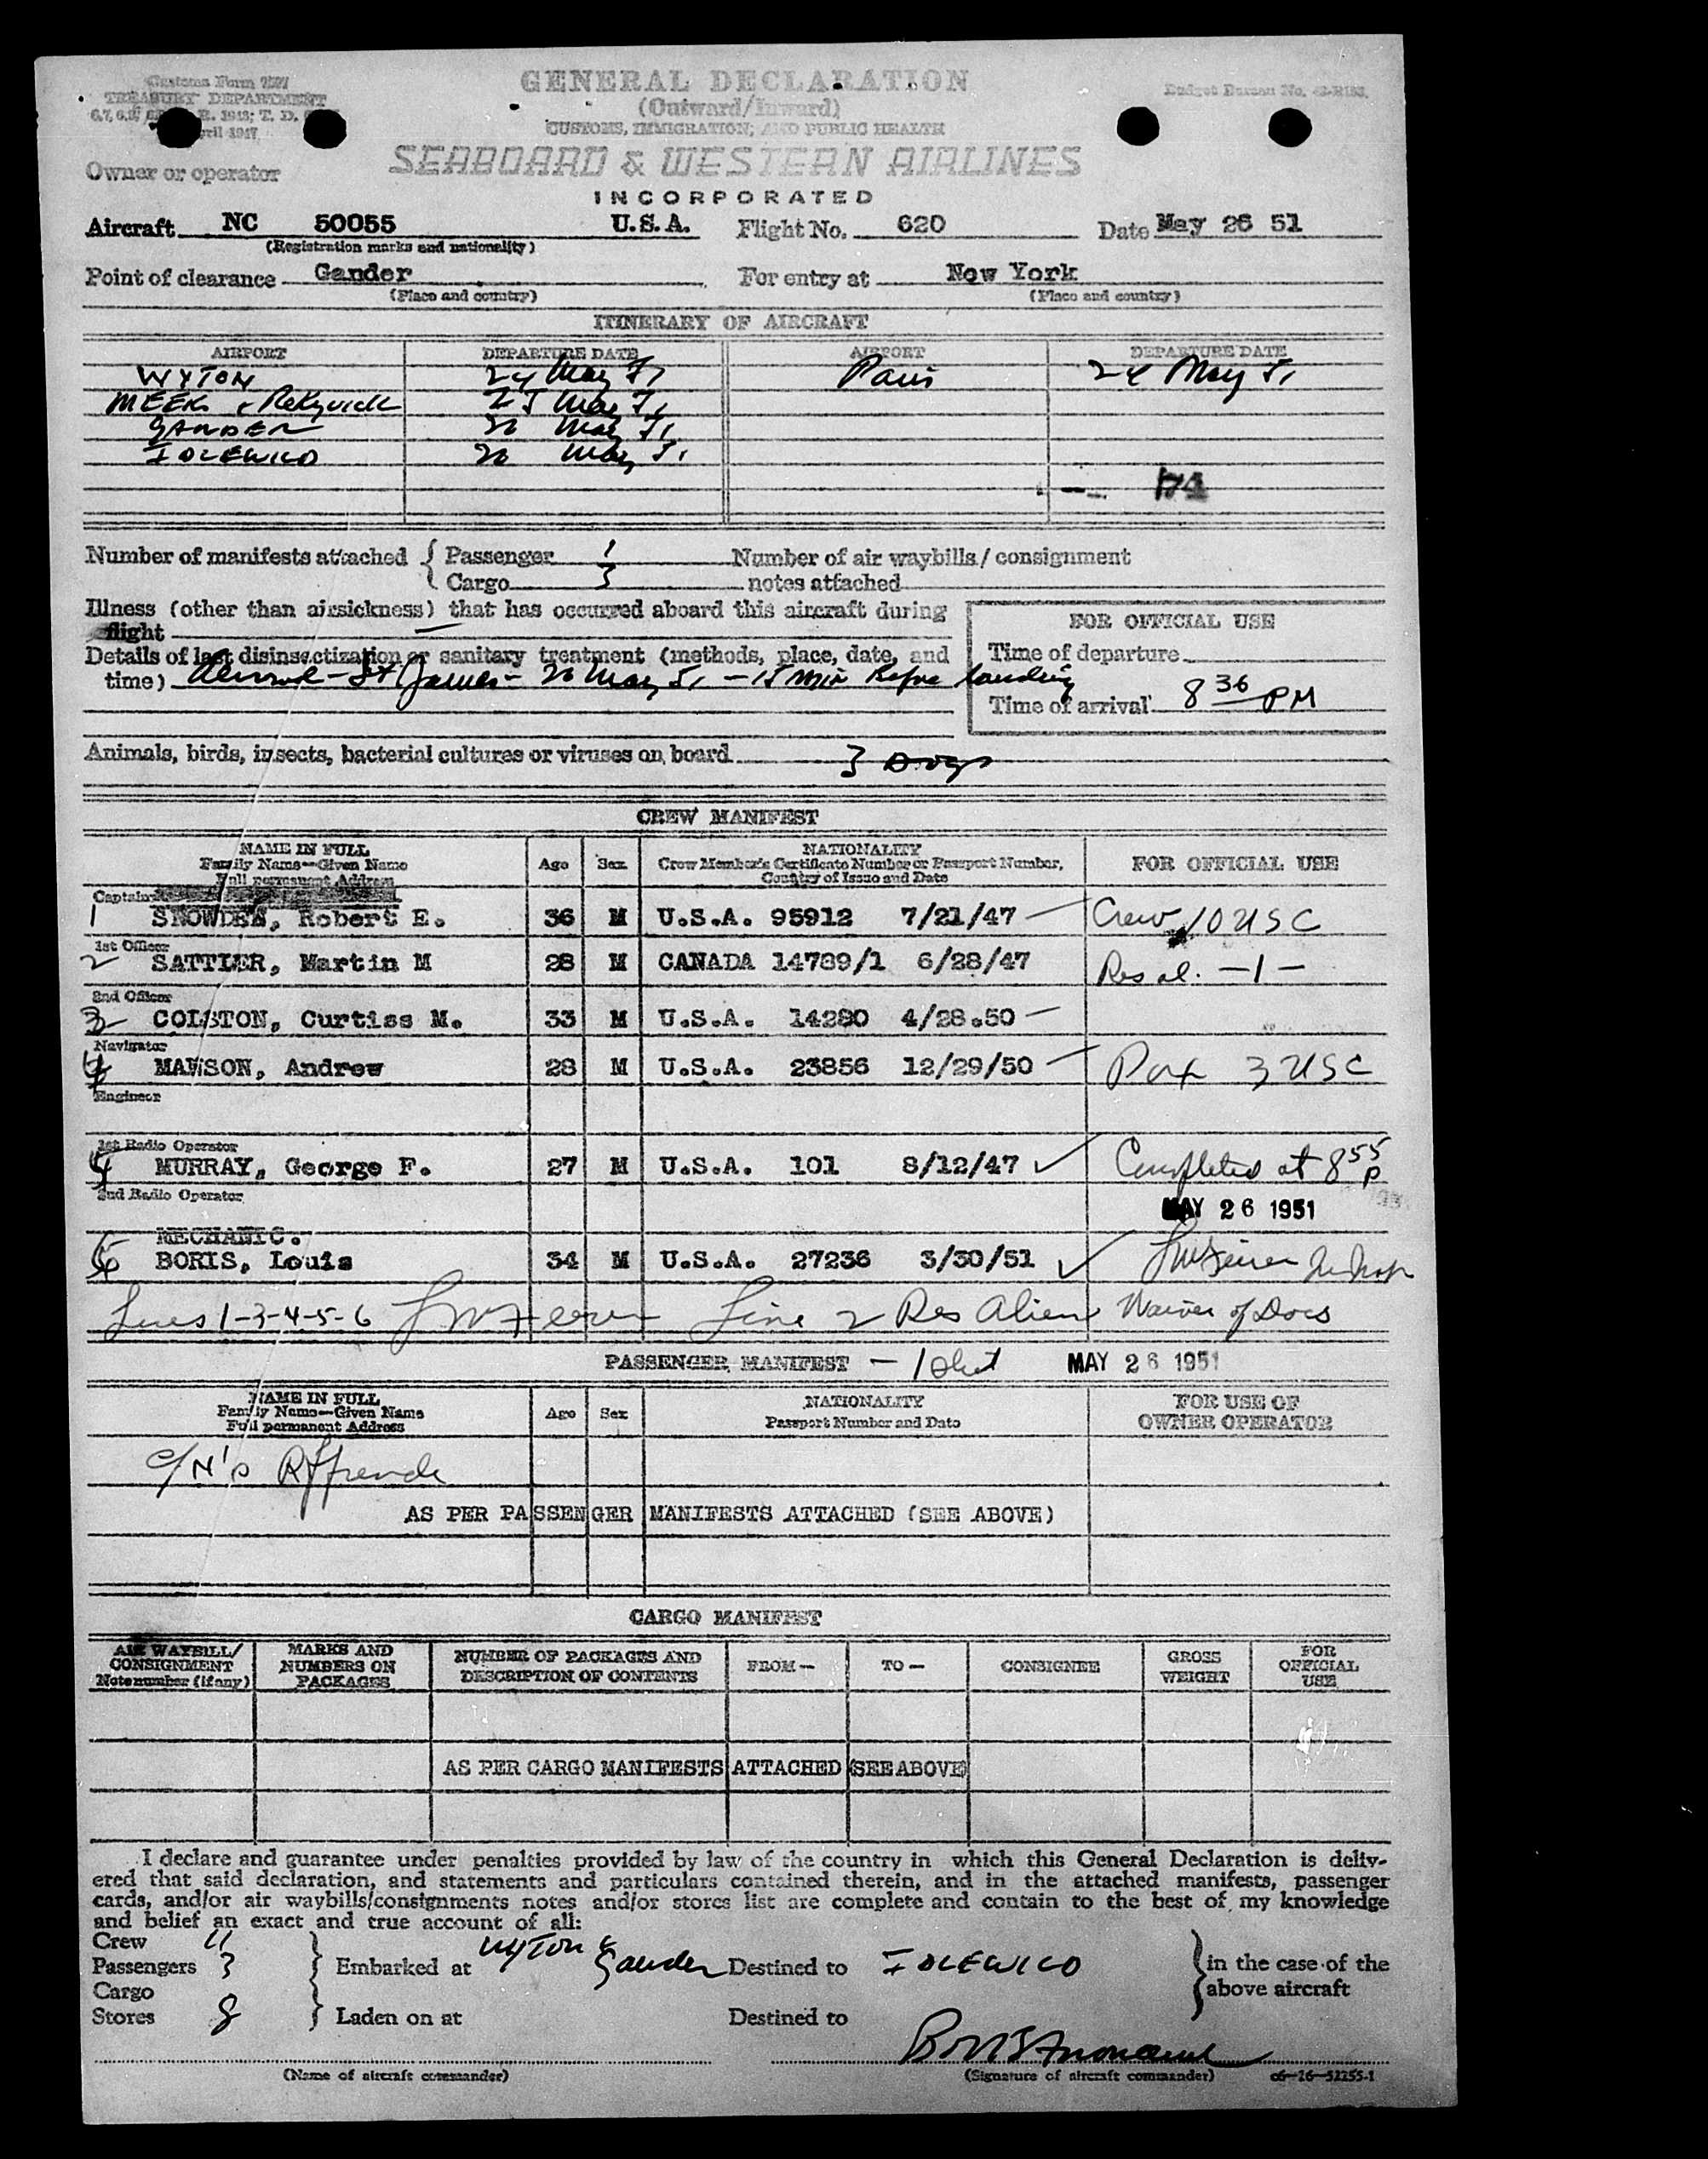 Customs Form 7507
TREASURY DEPARTMENT
April 1947
GENERAL DECLARATION
(Outward/Inward)
CUSTOMS, IMMIGRATION, AND PUBLIC HEALTH
Budget Bureau No.
Owner or operator
SEABOARD & WESTERN AIRLINES
INCORPORATED
Aircraft NC 50055 U.S.A. Flight No. 620 Date May 26 51
(Registration marks and nationality)
Point of clearance Gander For entry at New York
(Place and country) (Place and country)
ITINERARY OF AIRCRAFT
AIRPORT DEPARTURE DATE AIRPORT DEPARTURE DATE
WYTON 24 May 51 Paris 24 May 51
MEEKS 25 May 51
GANDER 26 May 51
IDLEWILD 26 May 51
Number of manifests attached { Passenger 1 Number of air waybills/consignment
Cargo 3 notes attached
Illness (other than airsickness) that has occurred aboard this aircraft during
flight —
FOR OFFICIAL USE
Details of last disinsectization or sanitary treatment (methods, place, date, and
time) Aerosol - St James - 26 May 51 - 15 min before landing
Time of departure
Time of arrival 8 36 PM
Animals, birds, insects, bacterial cultures or viruses on board 3 Dogs
CREW MANIFEST
NAME IN FULL
Family Name—Given Name
Full permanent Address
Age Sex
NATIONALITY
Crew Member's Certificate Number or Passport Number,
Country of Issue and Date
FOR OFFICIAL USE
Captain
1 SNOWDEN, Robert E. 36 M U.S.A. 95912 7/21/47 Crew 10 USC
1st Officer
2 SATTLER, Martin M 28 M CANADA 14789/1 6/28/47 Res al. —1—
2nd Officer
3 COLSTON, Curtiss M. 33 M U.S.A. 14280 4/28.50
Navigator
4 MAWSON, Andrew 28 M U.S.A. 23856 12/29/50 Pax 3 USC
Engineer
1st Radio Operator
5 MURRAY, George F. 27 M U.S.A. 101 8/12/47 Completed at 8 55 P
2nd Radio Operator
MAY 26 1951
MECHANIC.
6 BORIS, Louis 34 M U.S.A. 27236 3/30/51
Lines 1-3-4-5-6 Line 2 Res Alien Waiver of Docs
PASSENGER MANIFEST — 1 sheet MAY 26 1951
NAME IN FULL
Family Name—Given Name
Full permanent Address
Age Sex
NATIONALITY
Passport Number and Date
FOR USE OF
OWNER OPERATOR
AS PER PASSENGER MANIFESTS ATTACHED (SEE ABOVE)
CARGO MANIFEST
AIR WAYBILL/
CONSIGNMENT
Note number (if any)
MARKS AND
NUMBERS ON
PACKAGES
NUMBER OF PACKAGES AND
DESCRIPTION OF CONTENTS
FROM— TO— CONSIGNEE
GROSS
WEIGHT
FOR
OFFICIAL
USE
AS PER CARGO MANIFESTS ATTACHED (SEE ABOVE)
I declare and guarantee under penalties provided by law of the country in which this General Declaration is deliv-
ered that said declaration, and statements and particulars contained therein, and in the attached manifests, passenger
cards, and/or air waybills/consignments notes and/or stores list are complete and contain to the best of my knowledge
and belief an exact and true account of all:
Crew 11
Passengers 3 Embarked at WYTON & Gander Destined to IDLEWILD in the case of the
Cargo above aircraft
Stores Laden on at Destined to
(Name of aircraft commander) (Signature of aircraft commander) c6—16—52255-1